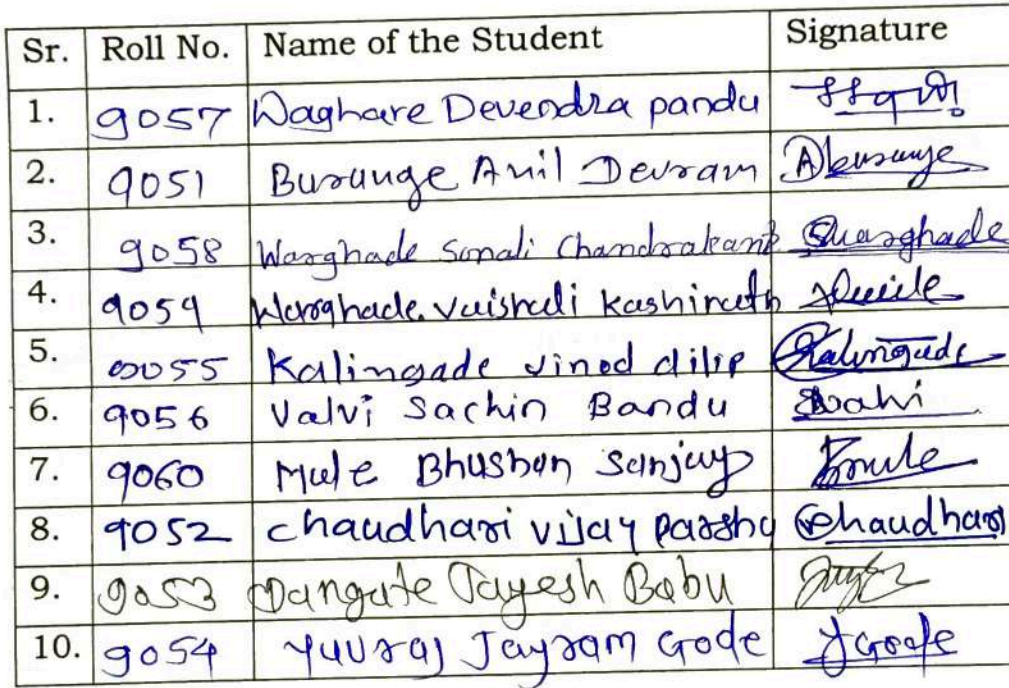 Sr. Roll No. Name of the Student Signature
1. 9057 Waghare Devendra pandu
2. 9051 Burange Anil Devram ABurange
3. 9058 Warghade Sonali Chandrakant Swarghade
4. 9059 Warghade Vaishali Kashinath
5. 9055 Kalingade vinod dilip Kalingade
6. 9056 Valvi Sachin Bandu
7. 9060 Mule Bhushan Sanjay Bmule
8. 9052 chaudhari vijay parshu chaudhari
9. 9053 Dangate Jayesh Babu
10. 9054 Yuvraj Jayram Gode YGode